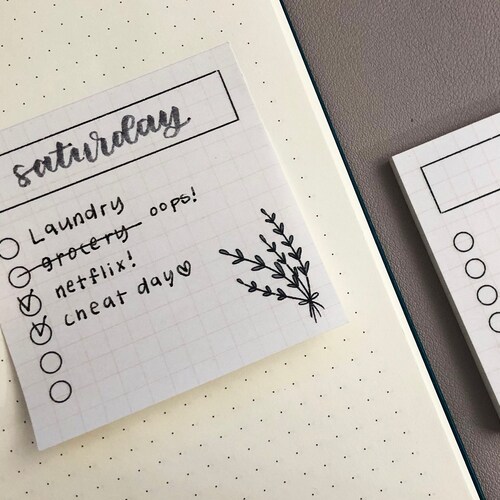 saturday
Laundry
grocery oops!
netflix!
cheat day♡